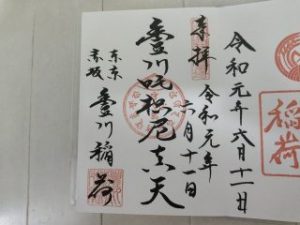 令和元年六月十一日
稲荷
奉拝
令和元年
六月十一日
豊川吒枳尼真天
東京
赤坂
豊川稲荷